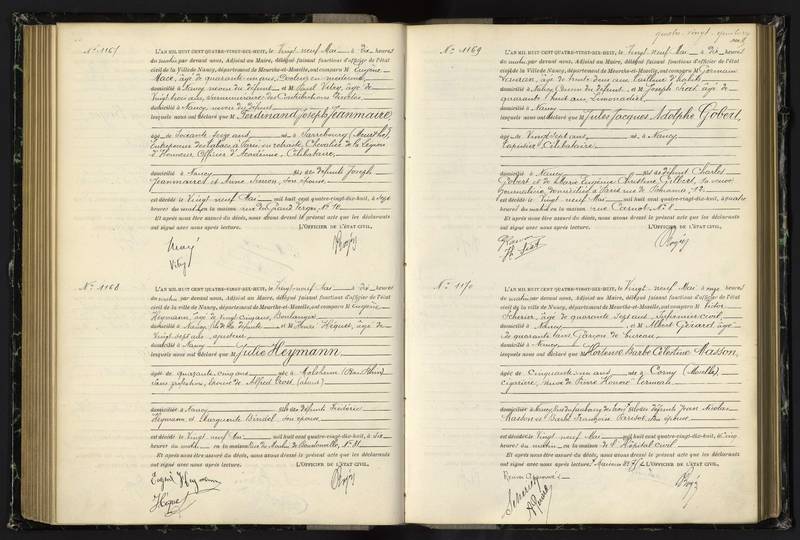 quatre-vingt-quinze
Nº 1167
L'AN MIL HUIT CENT QUATRE-VINGT-DIX-HUIT, le Vingt-neuf Mai à dix heures
du matin, par devant nous, Adjoint au Maire, délégué faisant fonctions d'officier de l'état
civil de la Ville de Nancy, département de Meurthe-et-Moselle, ont comparu M. Eugène
Macé, âgé de quarante un ans, Docteur en médecine,
domicilié à Nancy, du défunt et M. Paul Vitry, âgé de
Vingt trois ans, surnuméraire des Contributions directes
domicilié à Nancy, neveu du défunt
lesquels nous ont déclaré que M. Ferdinand Joseph Jeanmaire,
âgé de Soixante ans né à Sarrebourg (Meurthe)
Entreposeur des tabacs à Paris, en retraite, Chevalier de la Légion
d'Honneur, Officier d'Académie, Célibataire,
domicilié à Nancy fils des défunts Joseph
Jeanmaire et Anne Simon, son épouse,
est décédé le Vingt-neuf Mai mil huit cent quatre-vingt-dix-huit, à
heures du matin en la maison rue du Grand Verger, Nº 10
Et après nous être assuré du décès, nous avons dressé le présent acte que les déclarants
ont signé avec nous après lecture. L'OFFICIER DE L'ÉTAT CIVIL,
Macé
Vitry
Nº 1168
L'AN MIL HUIT CENT QUATRE-VINGT-DIX-HUIT, le Vingt-neuf Mai à dix heures
du matin, par devant nous, Adjoint au Maire, délégué faisant fonctions d'officier de l'état
civil de la ville de Nancy, département de Meurthe-et-Moselle, ont comparu M. Eugène
Heymann, âgé de Vingt cinq ans, Boulanger
domicilié à Nancy, fils de la défunte et M. Henri Héquet, âgé de
Vingt sept ans,
domicilié à Nancy
lesquels nous ont déclaré que M. Julie Heymann
âgée de quarante cinq ans née à Molsheim (Bas-Rhin)
sans profession, épouse de Alfred
domiciliée à Nancy fille des défunts Frédéric
Heymann et Marguerite Bindel son épouse
est décédée le Vingt neuf Mai mil huit cent quatre-vingt-dix-huit, à six
heures du matin en la maison rue du Moulin de Boudonville, Nº 31
Et après nous être assuré du décès, nous avons dressé le présent acte que les déclarants
ont signé avec nous après lecture. L'OFFICIER DE L'ÉTAT CIVIL,
Eugène Heymann
Nº 1169
L'AN MIL HUIT CENT QUATRE-VINGT-DIX-HUIT, le Vingt-neuf Mai à dix heures
du matin, par devant nous, Adjoint au Maire, délégué faisant fonctions d'officier de l'état
civil de la Ville de Nancy, département de Meurthe-et-Moselle, ont comparu M. Germain
âgé de trente deux ans Tailleur d'habits
domicilié à Nancy du défunt et M. Joseph âgé de
quarante huit ans, Limonadier
domicilié à Nancy
lesquels nous ont déclaré que M. Jules Jacques Adolphe Gobert,
âgé de Vingt sept ans né à Nancy
Tapissier, Célibataire
domicilié à Nancy fils de défunt Charles
Gobert et de Marie Eugénie Christine Gilbert, sa veuve
journalière, domiciliée à Paris rue de Panama, 12
est décédé le Vingt-neuf Mai mil huit cent quatre-vingt-dix-huit, à quatre
heures du matin en la maison rue Carnot, Nº
Et après nous être assuré du décès, nous avons dressé le présent acte que les déclarants
ont signé avec nous après lecture. L'OFFICIER DE L'ÉTAT CIVIL,
Nº 1170
L'AN MIL HUIT CENT QUATRE-VINGT-DIX-HUIT, le Vingt-neuf Mai à onze heures
du matin, par devant nous, Adjoint au Maire, délégué faisant fonctions d'officier de l'état
civil de la ville de Nancy, département de Meurthe-et-Moselle, ont comparu M. Victor
Scherier, âgé de quarante sept ans, Infirmier civil,
domicilié à Nancy, et M. Albert Gérard, âgé
de quarante ans, Garçon de bureau
domicilié à Nancy
lesquels nous ont déclaré que M. Hortense Barbe Célestine Masson,
âgée de Cinquante un ans née à Corny (Moselle)
cigarière, Veuve de Pierre Honoré
domiciliée à Nancy fille des défunts Jean Nicolas
Masson et Barbe Françoise son épouse
est décédée le Vingt-neuf Mai mil huit cent quatre-vingt-dix-huit, à cinq
heures du matin en la maison de l'Hôpital civil
Et après nous être assuré du décès, nous avons dressé le présent acte que les déclarants
ont signé avec nous après lecture. L'OFFICIER DE L'ÉTAT CIVIL,